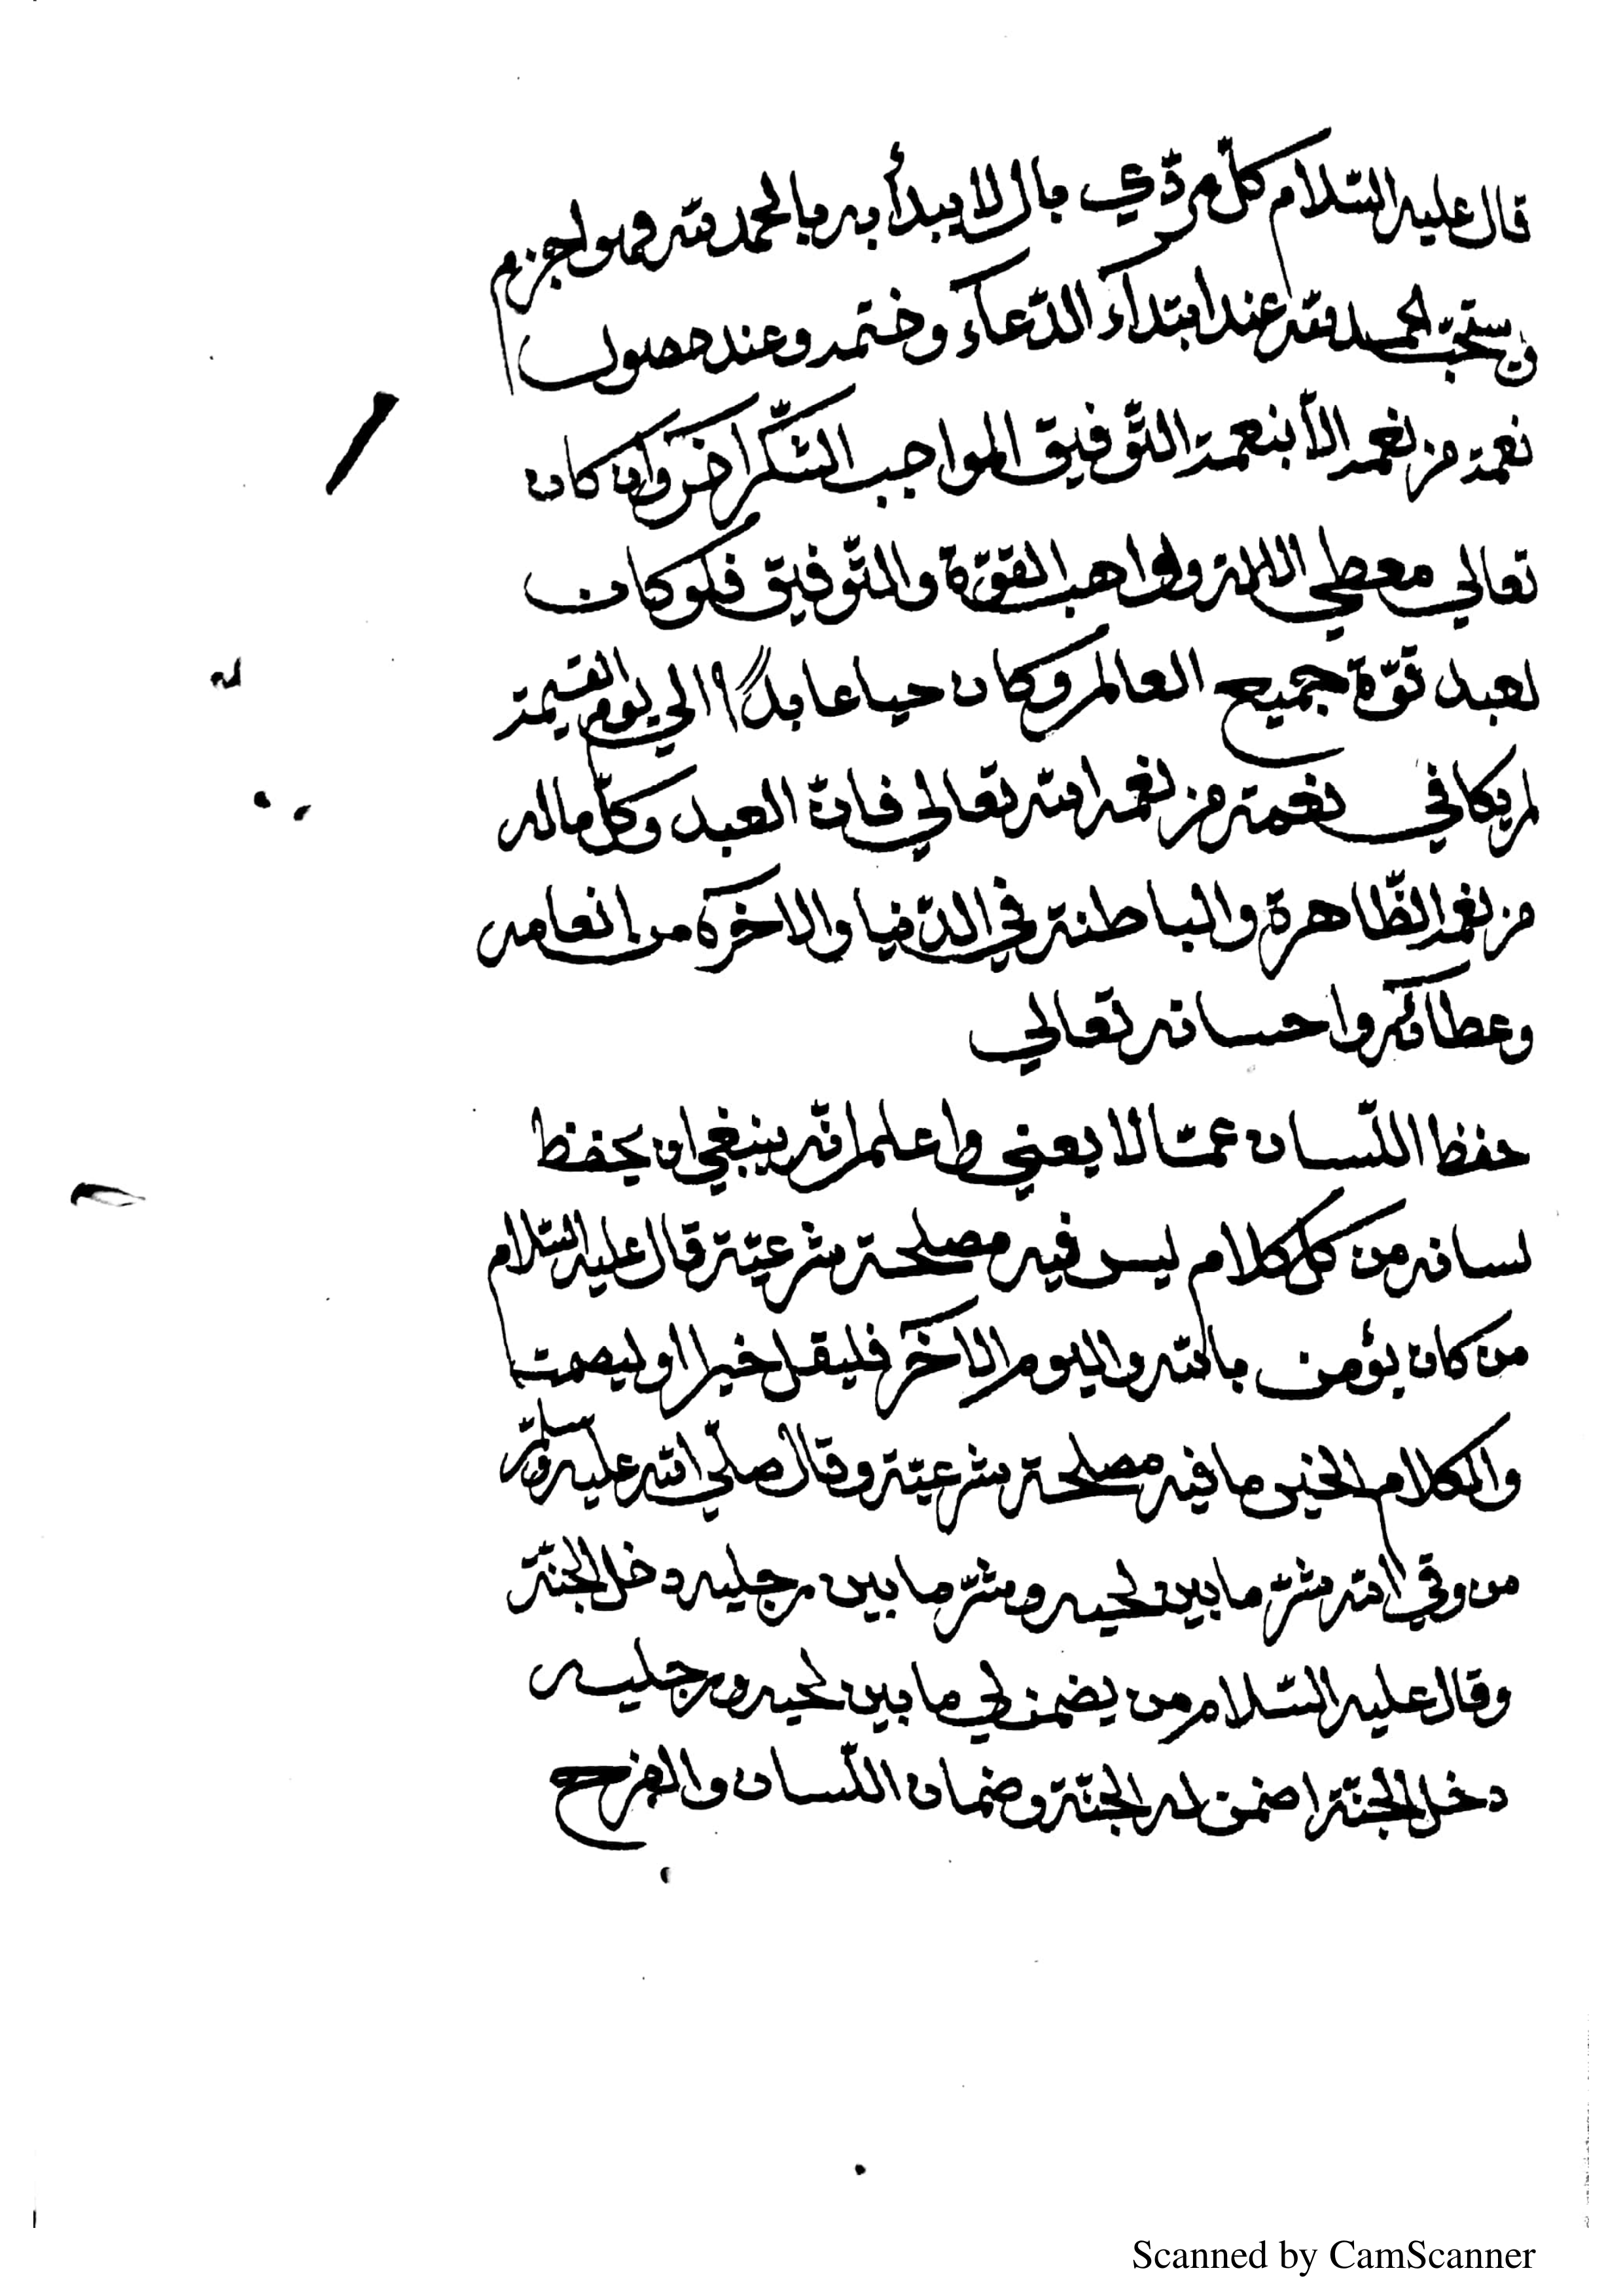 قال عليه السّلام كلّ امر ذي بال لا يبدأ به بالحمد لله فهو اجزم
ويستحبّ الحمد لله عند ابتداء الدّعاء وختمه وعند حصول
نعمة من نعمه الّا بنعمة التّوفيق المواجب الشّكر اخر وان كان
تعالي معطي الالة وواهب القوّة والتّوفيق فلو كان
لعبد قوّة جميع العالم وكان حيا عابدًا الي يوم القيمة
لم يكافي نعمة من نعم الله تعالي فانّ العبد وكلّ ماله
من نعمه الظّاهرة والباطنة في الدّنيا والاخرة من انعامه
وعطائه واحسانه تعالي
حفظ اللّسان عمّا لا يعني واعلم انّه ينبغي ان يحفظ
لسانه من كل كلام ليس فيه مصلحة شرعيّة قال عليه السّلام
من كان يؤمن بالله واليوم الاخر فليقل خيرا او ليصمت
والكلام الخير ما فيه مصلحة شرعيّة وقال صلّي الله عليه وسلّم
من وقي الله شرّ ما بين لحيه وشرّ ما بين رجليه دخل الجنّة
وقال عليه السّلام من يضمن لي ما بين لحيه ورجليه
دخل الجنّة اضمن له الجنّة وضمان اللّسان والفرج
Scanned by CamScanner